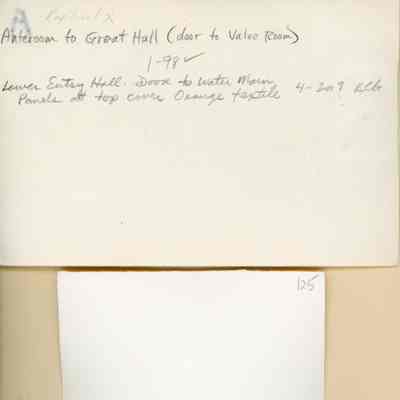 A
Anteroom to Great Hall (door to Valve Room)
1-98 ✓
Lower Entry Hall. Door to Water Main 4-2007
Panels at top cover Orange textile
125